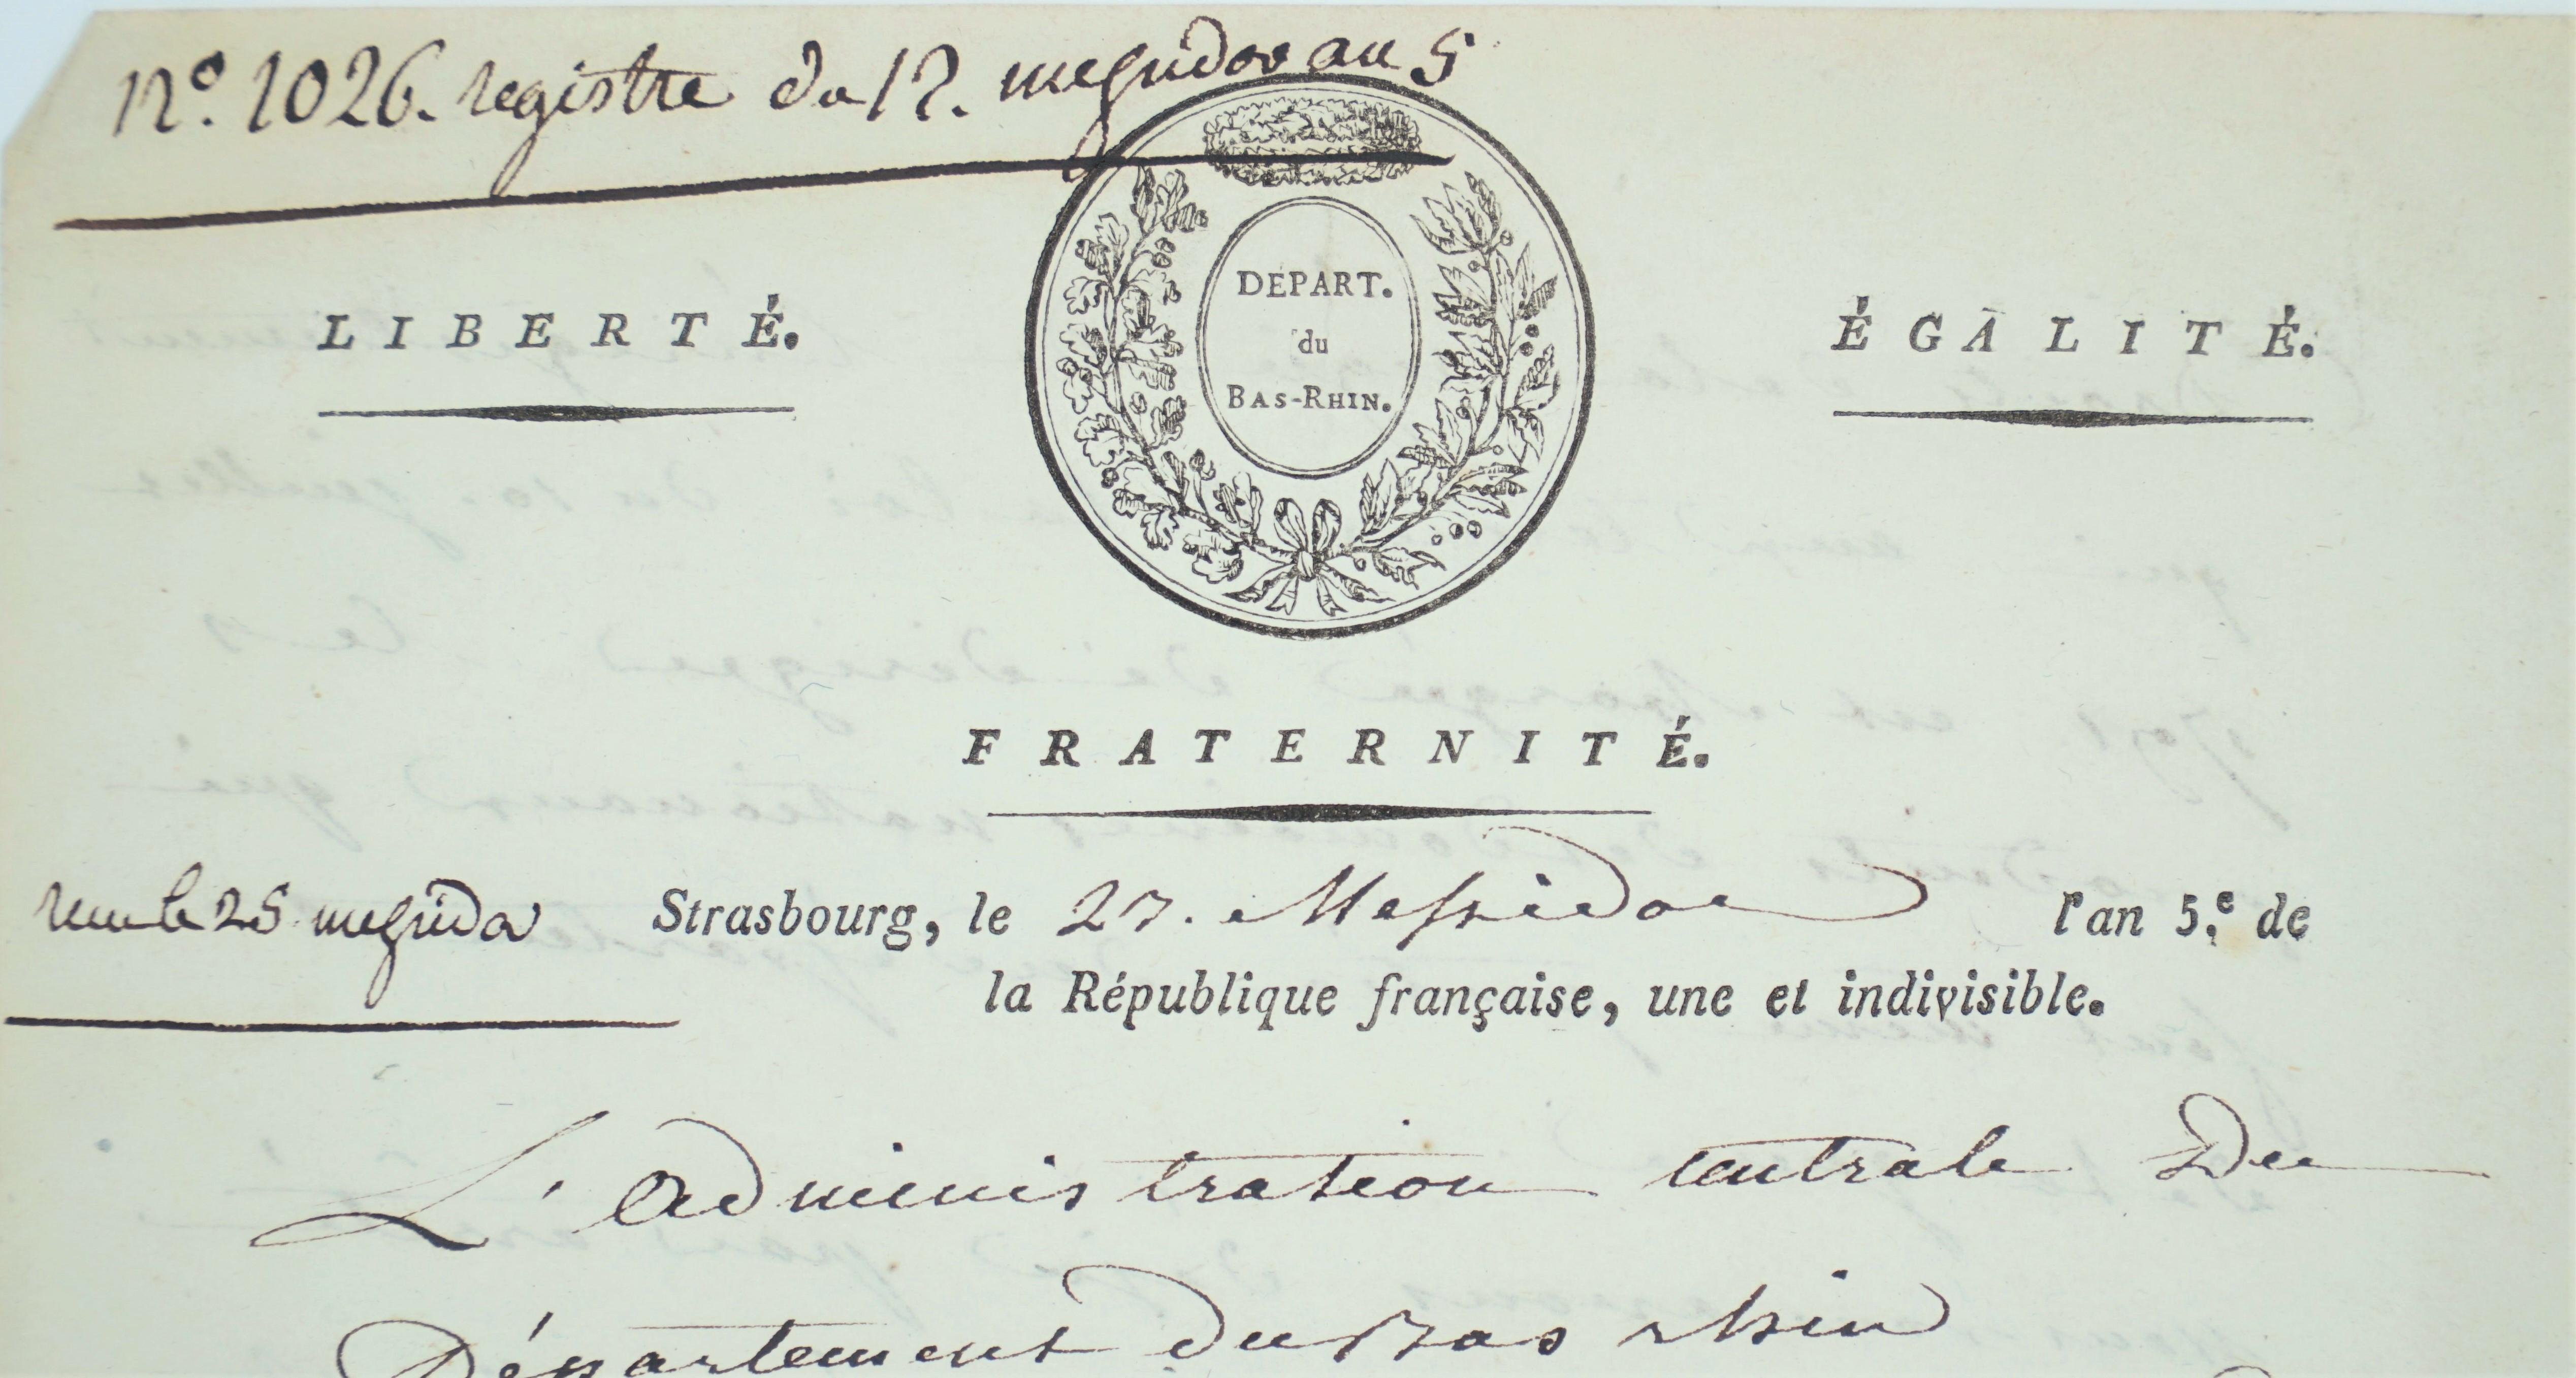 n.º 1026. registre du 12. messidor an 5
LIBERTÉ.
DÉPART.
du
BAS-RHIN.
ÉGALITÉ.
FRATERNITÉ.
le 25 messidor
Strasbourg, le 23. Messidor l'an 5.e de
la République française, une et indivisible.
L'administration centrale du
Département du Bas rhin